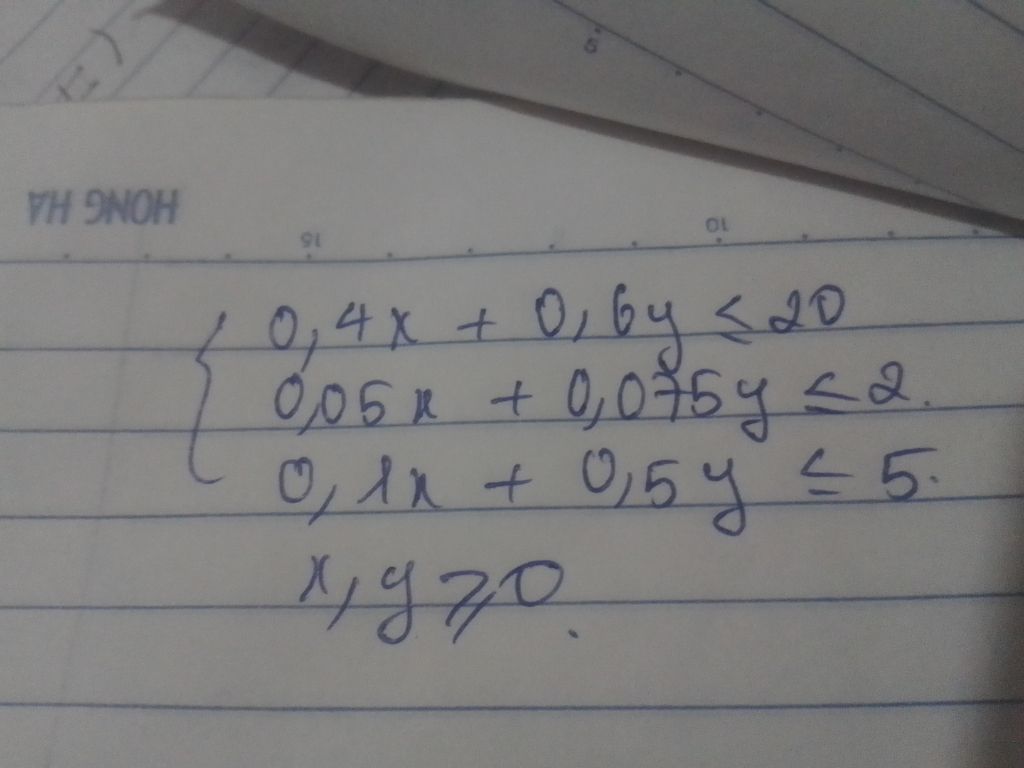 HONG HA
5
15
10
0,4x + 0,6y ≤ 20
0,05x + 0,075y ≤ 2.
0,1x + 0,5y ≤ 5.
x, y ⩾ 0.